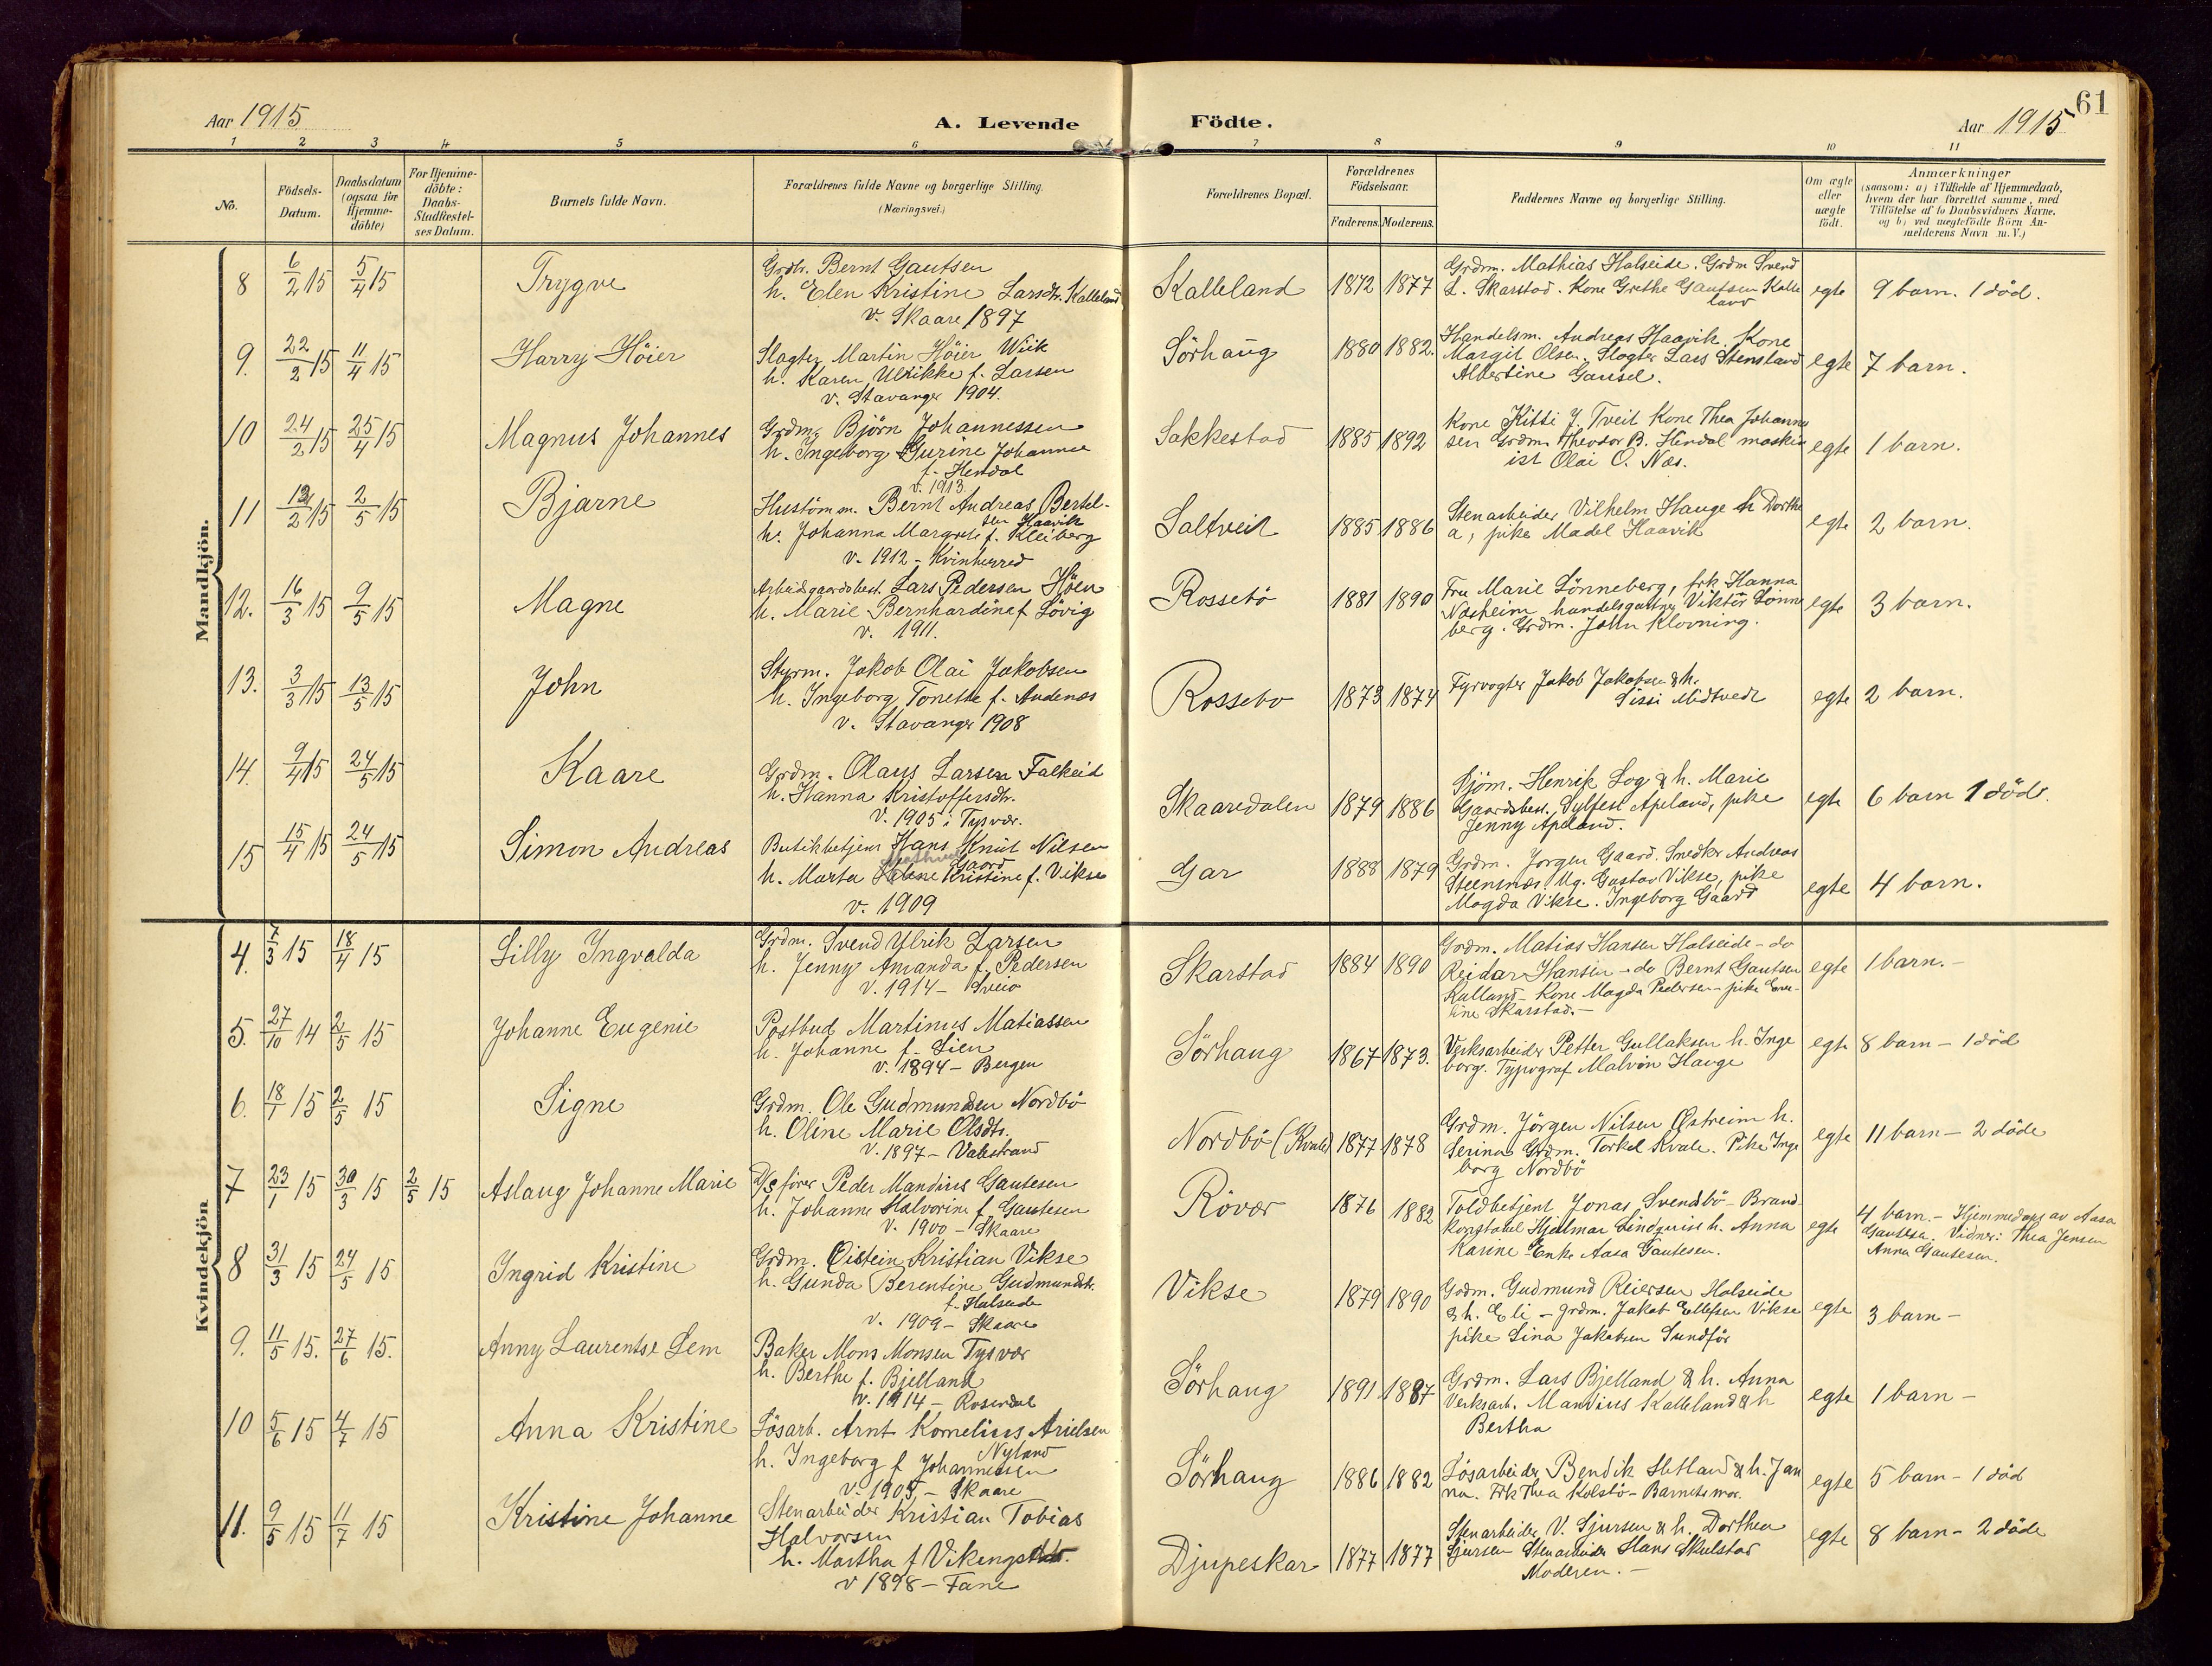 Aar 1915
A. Levende
Födte.
Aar 1915
61
1 2 3 4 5 6 7 8 9 10 11
No.
Födsels-
Datum.
Daabsdatum
(ogsaa for
Hjemme-
döbte)
For Hjemme-
döbte:
Daabs-
Stadfæstel-
ses Datum.
Barnets fulde Navn.
Forældrenes fulde Navne og borgerlige Stilling.
(Næringsvei.)
Forældrenes Bopæl.
Forældrenes
Födselsaar.
Faderens. Moderens.
Faddernes Navne og borgerlige Stilling.
Om ægte
eller
uægte
födt.
Anmærkninger
(saasom: a) i Tilfælde af Hjemmedaab,
hvem der har forrettet samme, med
Tilföielse af to Daabsvidners Navne,
og b) ved uægtefödte Börn An-
melderens Navn m. V.)
Mandkjön.
8 6/2 15 5/4 15 Trygve
Grdbr. Bernt Gautsen
h. Elen Kristine Larsdtr. Kalleland
v. Skaare 1897
Kalleland 1872 1877
Grdm. Mathias Halseide. Grdm Svend
L. Skarstad. Kone Grethe Gautsen Kalle
land
egte 9 barn. 1 död.
9. 22/2 15 11/4 15 Harry Höier
Slagter Martin Höier Wiik
h. Karen Ulrikke f. Larsen
v. Stavanger 1904.
Sörhaug 1880 1882.
Handelsm. Andreas Haavik. Kone
Margit Olsen. Slagter Lars Stensland
Albertine Gausel.
egte 7 barn.
10 24/2 15 25/4 15 Magnus Johannes
Grdm. Björn Johannessen
h. Ingeborg Gurine Johanne
f. Hendal
v. 1913.
Sakkestad 1885 1892
Kone Kitti J. Tveit Kone Thea Johannes
sen Grdm. Theodor B. Hendal maskin
ist Olai O. Næs.
egte 1 barn.
11 2/2 15 2/5 15 Bjarne
Hustömm. Bernt Andreas Bertel-
sen Haavik
h. Johanna Margrete f. Kleiberg
v. 1912 - Kvinherred
Saltveit 1885 1886
Stenarbeider Vilhelm Hauge h Dorthe
a, pike Madel Haavik
egte 2 barn.
12. 16/3 15 9/5 15 Magne
Arbeidgaardsbest. Lars Pedersen Höen
h. Marie Bernhardine f Lövig
v. 1911.
Rossebö 1881 1890
Fru Marie Lönneberg, frk Hanna
Næsheim handelsgartner Viktor Lönne
berg. Grdm. John Klovning.
egte 3 barn.
13. 3/3 15 13/5 15 John
Styrm. Jakob Olai Jakobsen
h. Ingeborg Tonette f. Andenæs
v. Stavanger 1908
Rossebo 1873 1874
Fyrvogter Jakob Jakobsen & h.
Sissi Midtvedt
egte 2 barn.
14. 9/4 15 24/5 15 Kaare
Grdm. Olaus Larsen Falkeid
h. Hanna Kristoffersdtr.
v. 1905 i Tysvær.
Skaaredalen 1879 1886
Sjöm. Henrik Log & h. Marie
Gaardsbest. Sylfest Apeland, pike
Jenny Apeland.
egte 6 barn 1 död.
15 15/4 15 24/5 15 Simon Andreas
Butikbetjent Hans Knut Nilsen
Gaard
h. Marta Kristine f. Vikse
v. 1909
Gar 1888 1879
Grdm. Jörgen Gaard. Snedker Andreas
Steensnæs. Ug. Gustav Vikse, pike
Magda Vikse. Ingeborg Gaard
egte 4 barn.
Kvindekjön
4. 7/3 15 18/4 15 Lilly Ingvalda
Grdm. Svend Ulrik Larsen
h. Jenny Amanda f. Pedersen
v. 1914 - Sveio
Skarstad 1884 1890
Grdm. Matias Hansen Halseide - do
Reidar Hansen - do Bernt Gautsen
Kalland - Kone Magda Pedersen - pike Eve-
line Skarstad. -
egte 1 barn. -
5. 27/10 14 2/5 15 Johanne Eugenie
Postbud Martinus Matiassen
h. Johanne f. Lien
v. 1894 - Bergen
Sörhaug 1867 1873.
Verksarbeider Petter Gullaksen h. Inge
borg. Typograf Malvin Hauge
egte 8 barn - 1 död
6. 18/1 15 2/5 15 Signe
Grdm. Ole Gudmundsen Nordbö
h. Oline Marie Olsdtr.
v. 1897 - Valestrand
Nordbö (Kvale) 1877 1878
Grdm. Jörgen Nilsen Östreim h.
Serina Grdm. Torkel Kvale. Pike Inge
borg Nordbö
egte 11 barn - 2 döde
7 23/1 15 30/3 15 2/5 15 Aslaug Johanne Marie
D/S förer Peder Mandius Gautesen
h. Johanne Halvorine f Gautesen
v. 1900 - Skaare
Rövær 1876 1882
Toldbetjent Jonas Svendbö - Brand-
konstabel Hjalmar Lindquist h. Anna
Karine - Enke Aasa Gautesen.
egte 4 barn. - Hjemmedöpt av Aasa
Gautesen. Vidner: Thea Jensen
Anna Gautesen.
8 31/3 15 24/5 15 Ingrid Kristine
Grdm. Öistein Kristian Vikse
h. Gunda Berentine Gudmundsdtr.
f. Halseide
v. 1909 - Skaare
Vikse 1879 1890
Grdm. Gudmund Reiersen Halseide
& h. Eli - grdm. Jakob Ellefsen Vikse
pike Lina Jakobsen Sundför
egte 3 barn -
9. 11/5 15. 27/6 15. Anny Laurentse Lem
Baker Mons Monsen Tysvær
h. Berthe f. Bjelland
v. 1914 - Rosendal
Sörhaug 1891 1887
Grdm. Lars Bjelland & h. Anna
Verksarb. Mandius Kalleland & h
Bertha
egte 1 barn -
10 5/6 15 4/7 15 Anna Kristine
Lösarb. Arnt Kornelius Arielsen
Nyland
h. Ingeborg f Johannessen
v. 1905 - Skaare
Sörhaug 1886 1882
Lösarbeider Bendik Hetland & h. Jan
na. Frk Thea Kolstö - Barnets mor.
egte 5 barn - 1 död
11. 9/5 15 11/7 15 Kristine Johanne
Stenarbeider Kristian Tobias
Halvorsen
h. Martha f Vikingstad.
v 1898 - Fane
Djupeskar 1877 1877
Stenarbeider V. Sjursen & h. Dorthea
Sjursen Stenarbeider Hans Skulstad
Moderen. -
egte 8 barn - 2 döde